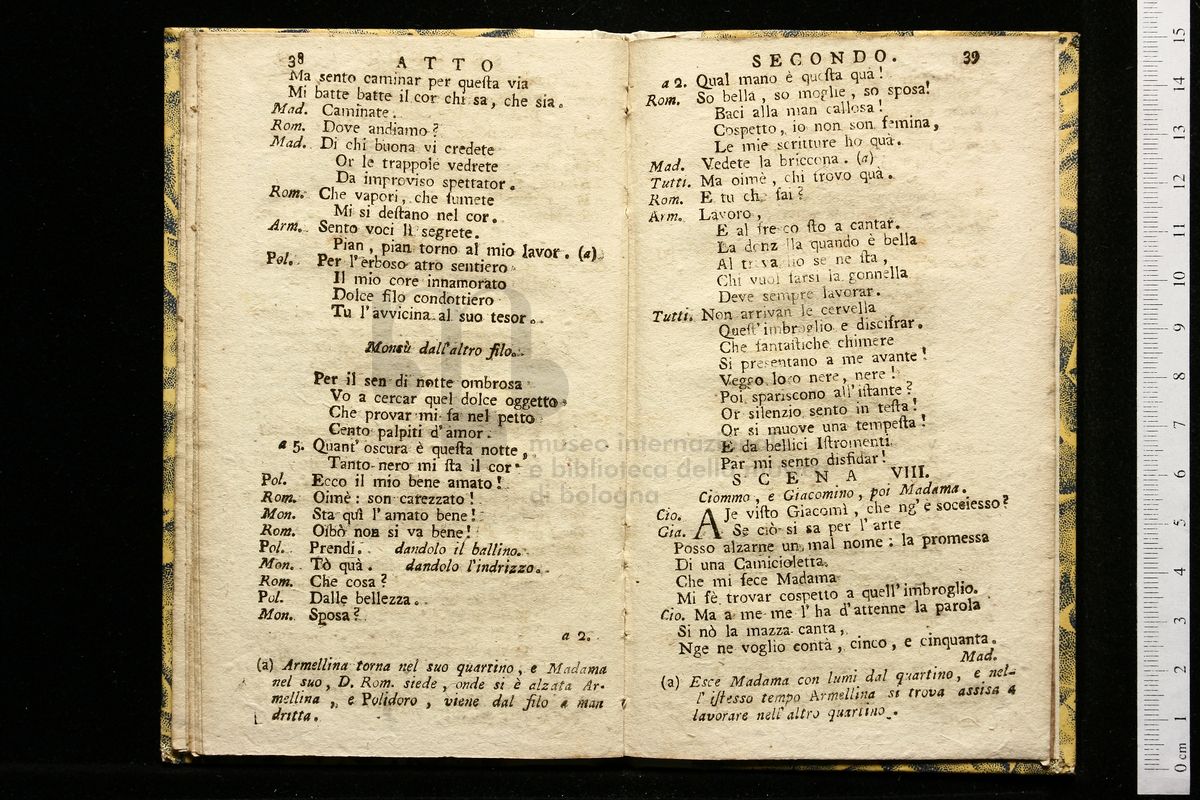 38 ATTO
Ma sento caminar per questa via
Mi batte batte il cor chi sa, che sia.
Mad. Caminate.
Rom. Dove andiamo?
Mad. Di chi buona vi credete
Or le trappole vedrete
Da improviso spettator.
Rom. Che vapori, che fumete
Mi si destano nel cor.
Arm. Sento voci lì segrete.
Pian, pian torno al mio lavor. (a)
Pol. Per l'erboso atro sentiero
Il mio core innamorato
Dolce filo condottiero
Tu l'avvicina al suo tesor.
Monsù dall'altro filo.
Per il sen di notte ombrosa
Vo a cercar quel dolce oggetto
Che provar mi fa nel petto
Cento palpiti d'amor.
a 5. Quant' oscura è questa notte,
Tanto nero mi sta il cor.
Pol. Ecco il mio bene amato!
Rom. Oimè: son carezzato!
Mon. Sta quì l'amato bene!
Rom. Oibò non si va bene!
Pol. Prendi. dandolo il ballino.
Mon. Tò quà. dandolo l'indrizzo.
Rom. Che cosa?
Pol. Dalle bellezza.
Mon. Sposa?
a 2.
(a) Armellina torna nel suo quartino, e Madama
nel suo, D. Rom. siede, onde si è alzata Ar-
mellina, e Polidoro, viene dal filo a man
dritta.
SECONDO. 39
a 2. Qual mano è questa quà!
Rom. So bella, so moglie, so sposa!
Baci alla man callosa!
Cospetto, io non son femina,
Le mie scritture ho quà.
Mad. Vedete la briccona. (a)
Tutti. Ma oimè, chi trovo quà.
Rom. E tu che fai?
Arm. Lavoro,
E al fresco sto a cantar.
La donzella quando è bella
Al se ne sta,
Chi vuol farsi la gonnella
Deve sempre lavorar.
Tutti. Non arrivan le cervella
Quest'imbroglio e discifrar.
Che fantastiche chimere
Si presentano a me avante!
Veggo loro nere, nere!
Poi spariscono all'istante?
Or silenzio sento in testa!
Or si muove una tempesta!
E da bellici Istromenti
Par mi sento disfidar!
SCENA VIII.
Ciommo, e Giacomino, poi Madama.
Cio. AJe visto Giacomì, che ng'è soccíesso?
Gia. Se ciò si sa per l'arte
Posso alzarne un mal nome: la promessa
Di una Camicioletta.
Che mi fece Madama
Mi fè trovar cospetto a quell'imbroglio.
Cio. Ma a me me l'ha d'attenne la parola
Si nò la mazza canta,
Nge ne voglio contà, cinco, e cinquanta.
Mad.
(a) Esce Madama con lumi dal quartino, e nel-
l'istesso tempo Armellina si trova assisa a
lavorare nell'altro quartino.
museo internazionale
e biblioteca della musica
di bologna
0 cm 1 2 3 4 5 6 7 8 9 10 11 12 13 14 15